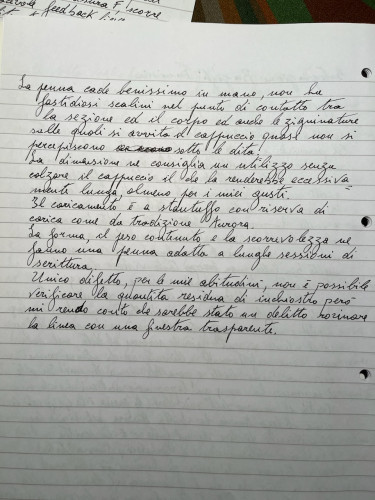 feedback
La penna cade benissimo in mano, non ha
fastidiosi scalini nel punto di contatto tra
la sezione ed il corpo ed anche le zigrinature
sulle quali si avvita il cappuccio quasi non si
percepiscono sotto le dita.
La dimensione ne consiglia un utilizzo senza
calzare il cappuccio il che la renderebbe eccessiva-
mente lunga, almeno per i miei gusti.
Il caricamento è a stantuffo con riserva di
carica come da tradizione Aurora.
La forma, il peso contenuto e la scorrevolezza ne
fanno una penna adatta a lunghe sessioni di
scrittura.
Unico difetto, per le mie abitudini, non è possibile
verificare la quantità residua di inchiostro però
mi rendo conto che sarebbe stato un delitto rovinare
la linea con una finestra trasparente.